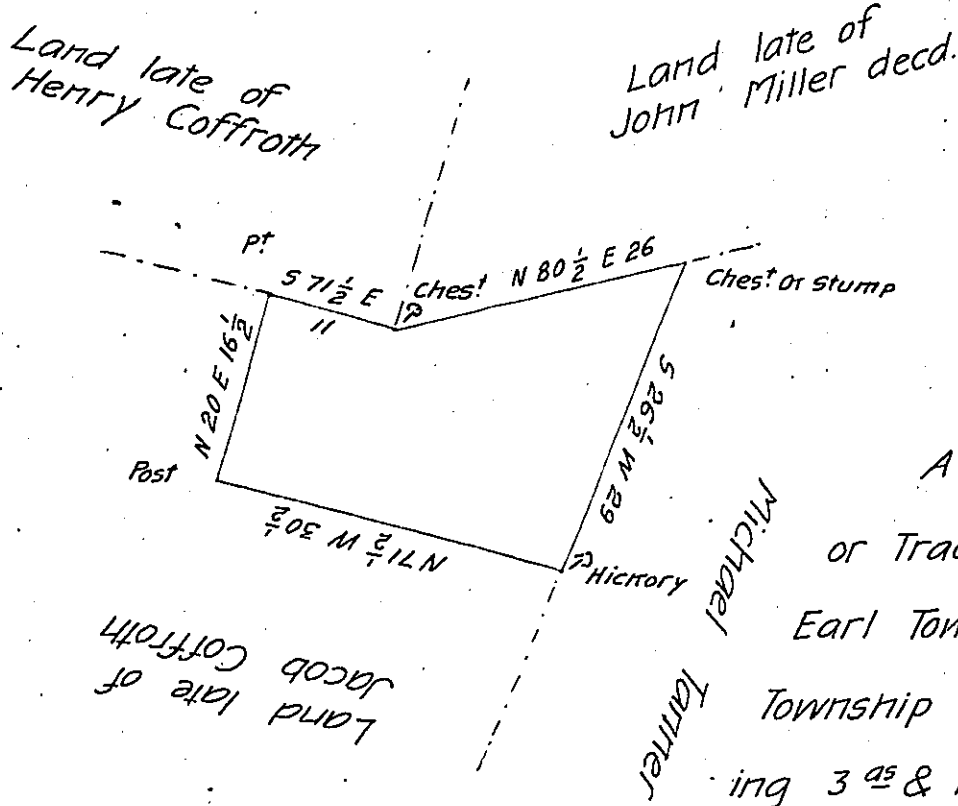 Land late of
Henry Coffroth
Land late of
John Miller decd.
Pt
S 71 1/2 E
11
Chest
N 80 1/2 E 26
Chest or stump
N 20 E 16 1/2
S 26 1/2 W 29
Post
N 71 1/2 W 30 1/2
Hickory
Land late of
Jacob Coffroth
Michael Tanner
A
or Trac
Earl Tow
Township
ing 3 as &